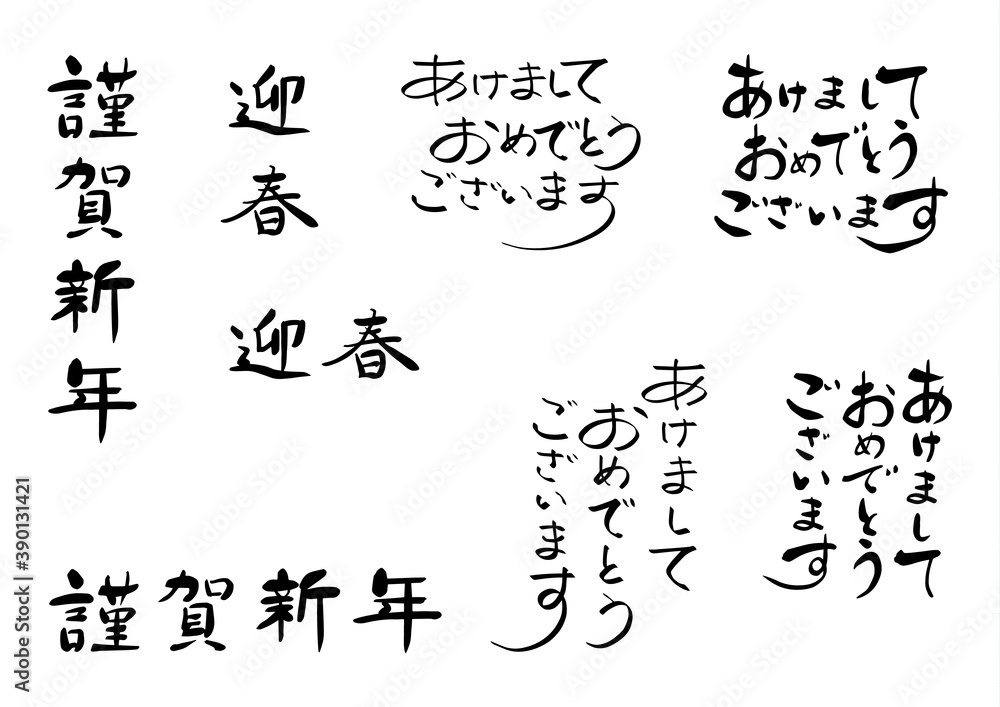 謹賀新年
迎春
あけまして
おめでとう
ございます
あけまして
おめでとう
ございます
迎春
あけまして
おめでとう
ございます
あけまして
おめでとう
ございます
謹賀新年
Adobe Stock | #390131421